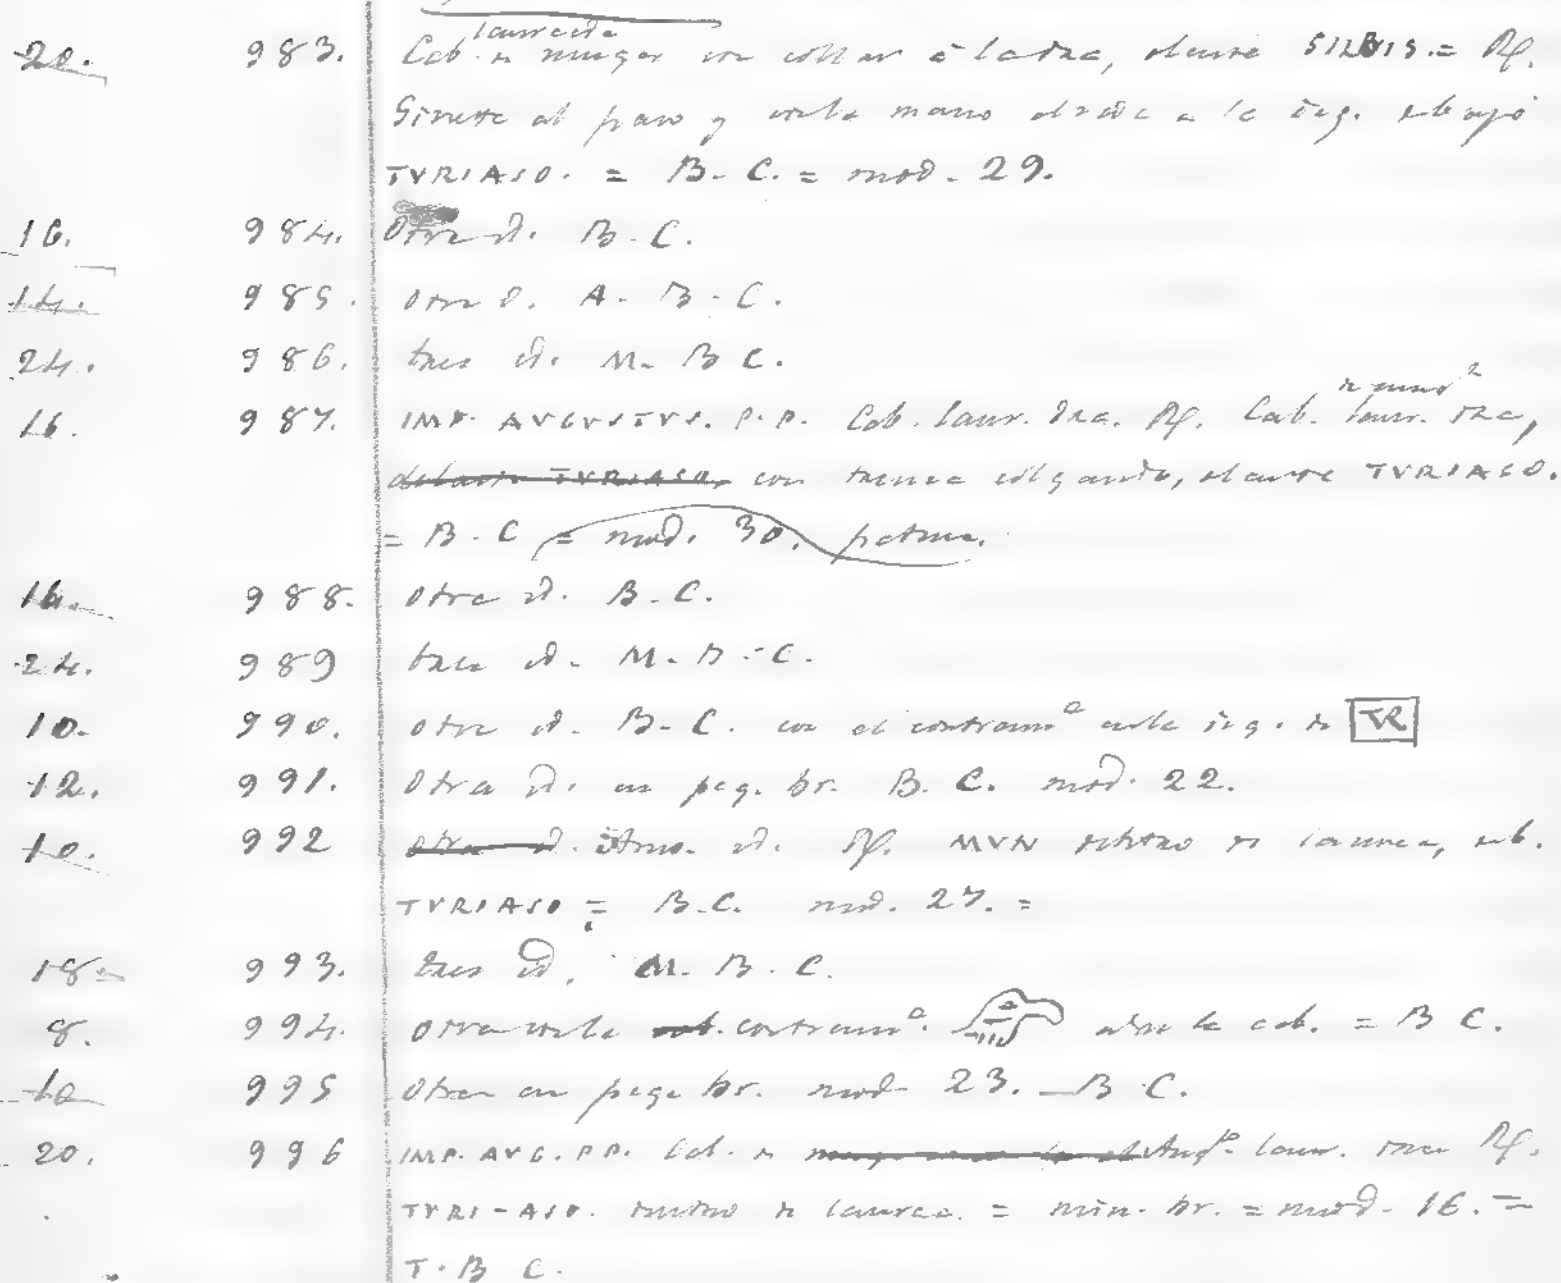 laureada
20. 983. Cab. de muger con collar á la dra, delante SILBIS. = Rf.
Ginete al paso y con la mano alzada a la izq. debajo
TVRIASO. = B. C. = mod. 29.
16. 984. Otra id. B. C.
14. 985. otra id. A. B. C.
24. 986. tres id. M. B C.
de muger
16. 987. IMP. AVGVSTVS. P. P. Cab. laur. dra. Rf. Cab. laur. dra,
delante TVRIASO, con trenza colgando, delante TVRIASO.
= B. C = mod. 30. patina.
16. 988. Otra id. B. C.
24. 989 tres id. M. B. C.
10. 990. otra id. B. C. con el contram^a en la izq. de TR
12. 991. Otra id. en peq. br. B. C. mod. 22.
10. 992 otra id. id. Rf. MVN dentro de laurea, deb.
TVRIASO = B. C. mod. 27. =
18. 993. tres id. M. B. C.
8. 994. otra con la contram^a. sobre la cab. = B C.
10 995 Otra en peq. br. mod. 23. _ B C.
20. 996 IMP. AVG. P.P. Cab. de Aug^to laur. dra Rf.
TVRI-ASO. dentro de laurea. = min. br. = mod. 16. =
T. B C.